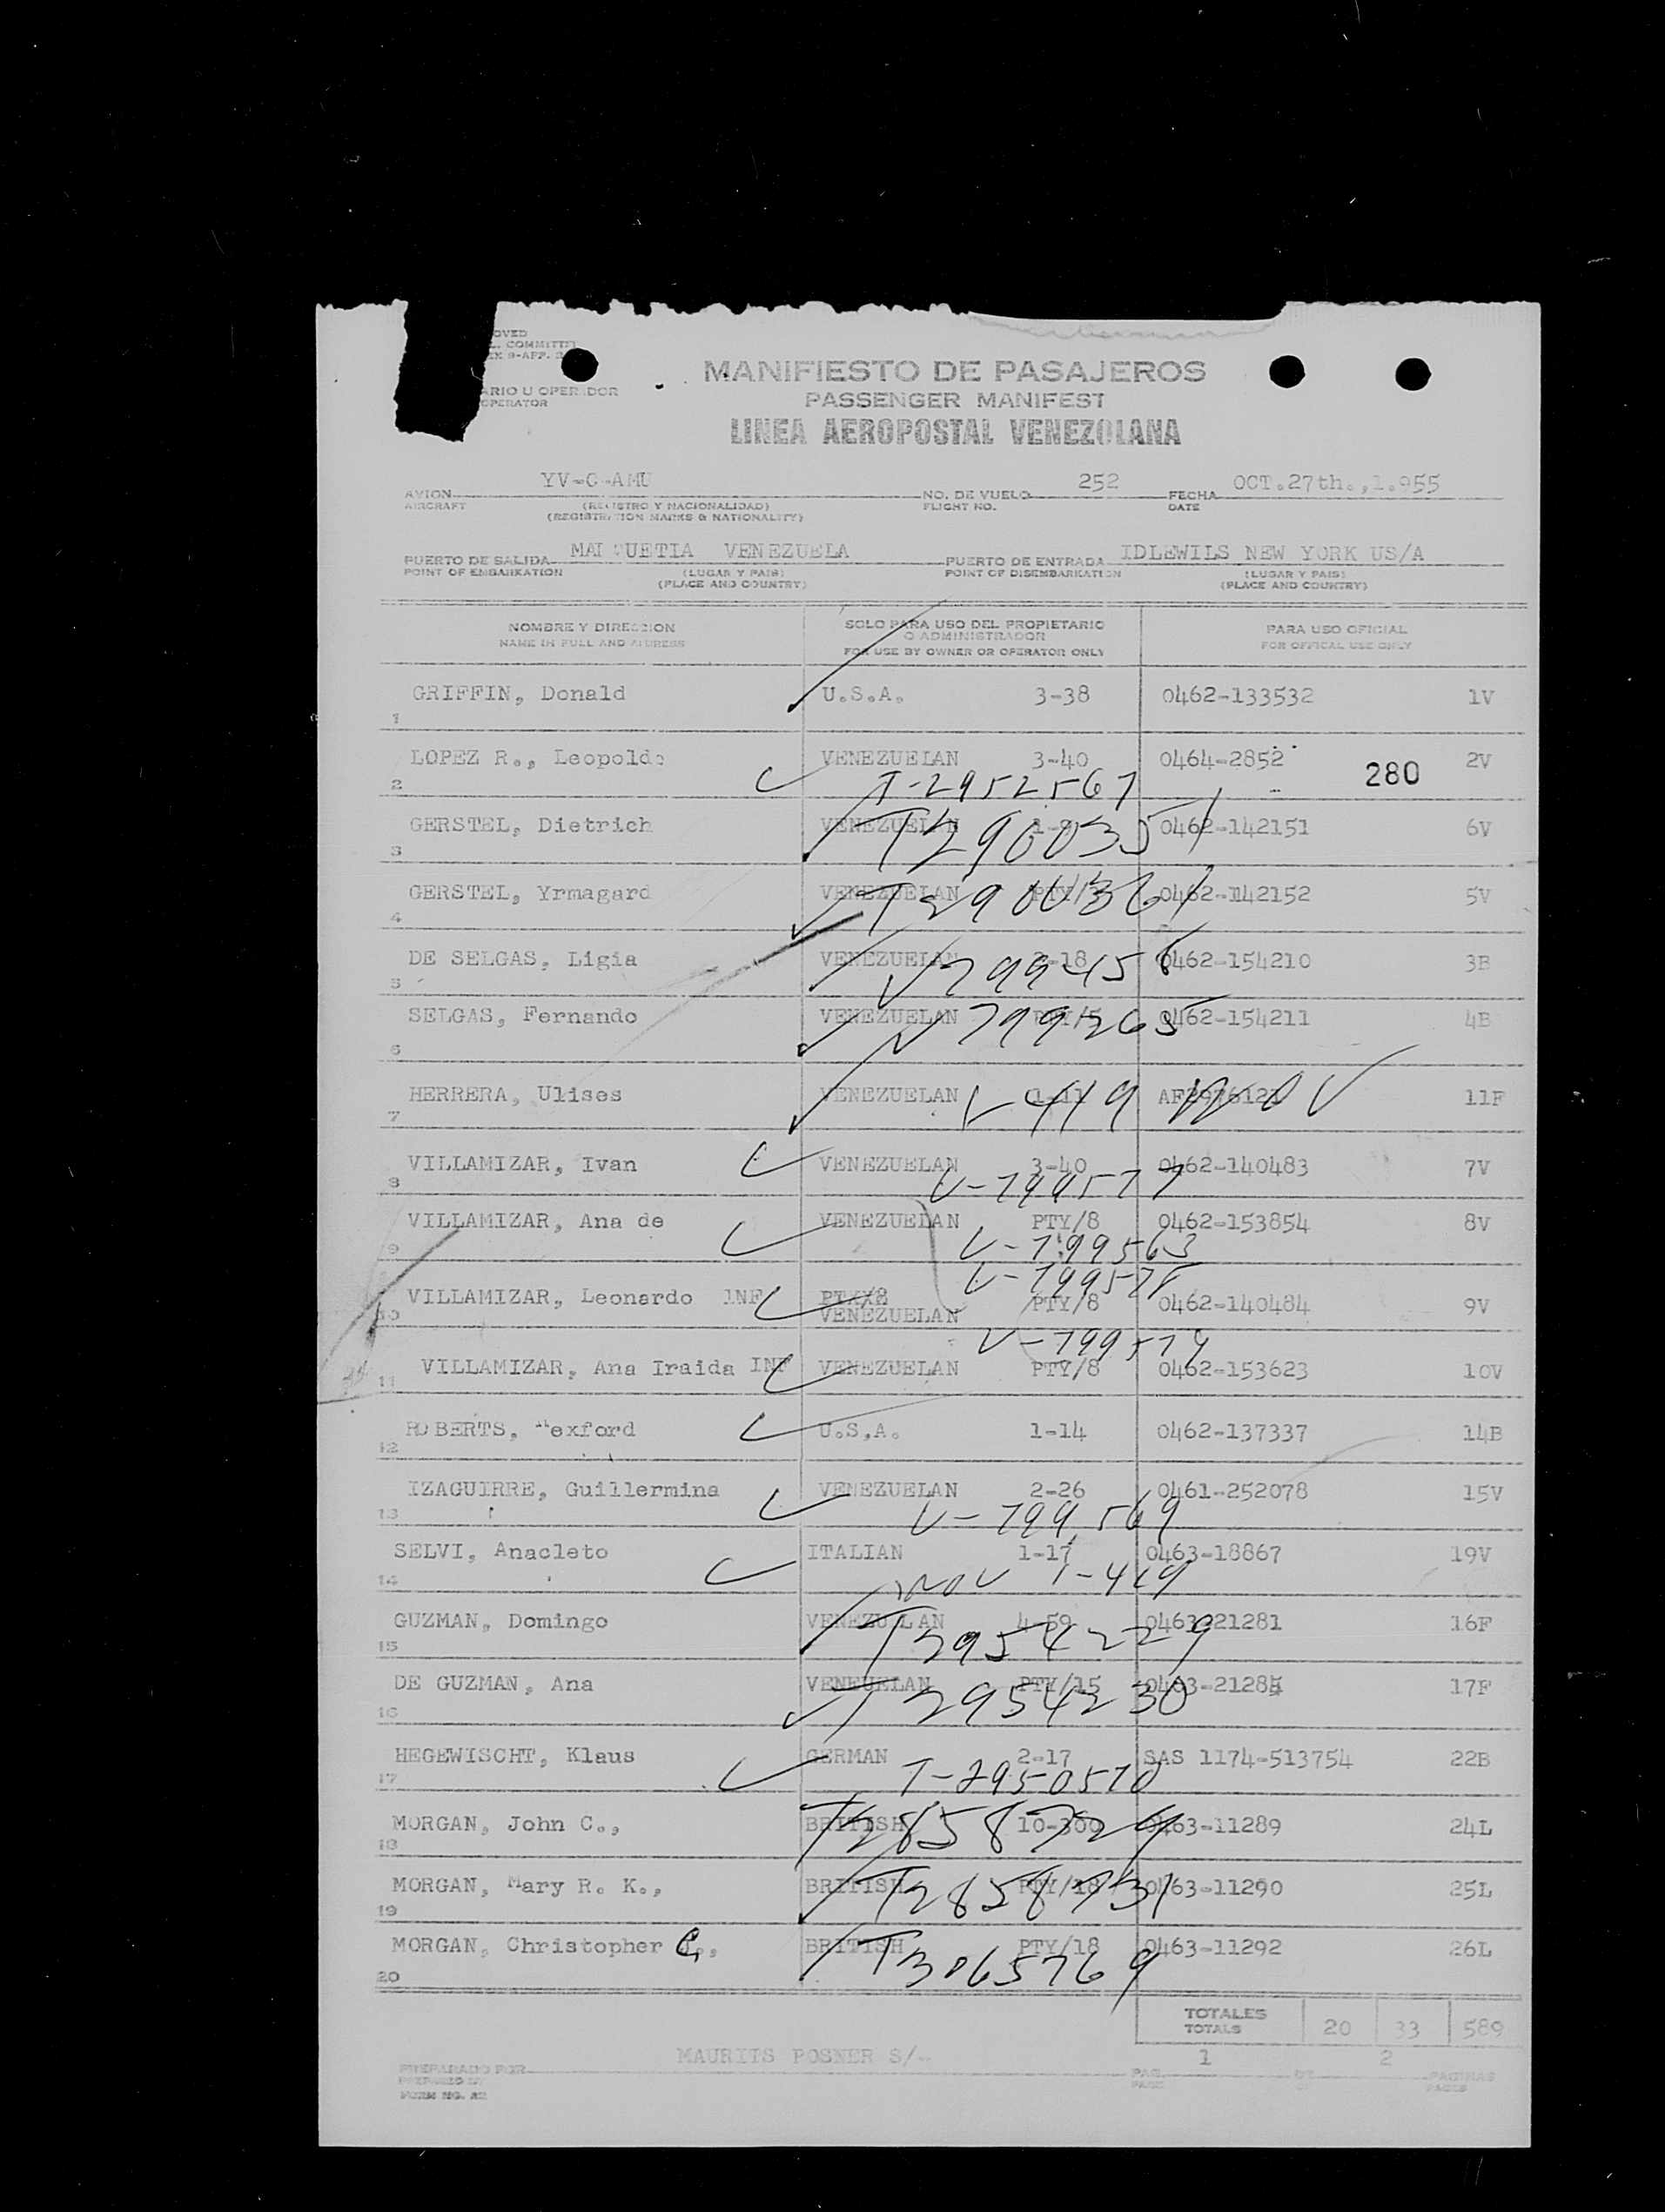 OVED
L. COMMITTE
EX 9-APP. 2
ARIO U OPERADOR
OPERATOR
MANIFIESTO DE PASAJEROS
PASSENGER MANIFEST
LINEA AEROPOSTAL VENEZOLANA
AVION YV-C-AMU NO. DE VUELO 252 FECHA OCT.27th.,1.955
AIRCRAFT (REGISTRO Y NACIONALIDAD) FLIGHT NO. DATE
(REGISTRATION MARKS & NATIONALITY)
PUERTO DE SALIDA MAIQUETIA VENEZUELA PUERTO DE ENTRADA IDLEWILS NEW YORK US/A
POINT OF EMBARKATION (LUGAR Y PAIS) POINT OF DISEMBARKATION (LUGAR Y PAIS)
(PLACE AND COUNTRY) (PLACE AND COUNTRY)
NOMBRE Y DIRECCION SOLO PARA USO DEL PROPIETARIO PARA USO OFICIAL
NAME IN FULL AND ADDRESS O ADMINISTRADOR FOR OFFICAL USE ONLY
FOR USE BY OWNER OR OPERATOR ONLY
GRIFFIN, Donald U.S.A. 3-38 0462-133532 1V
1
LOPEZ R., Leopoldo VENEZUELAN 3-40 0464-2852 280 2V
2 T-2952567
GERSTEL, Dietrich VENEZUELAN 0462-142151 6V
3 T290035
GERSTEL, Yrmagard VENEZUELAN 0462-142152 5V
4
DE SELGAS, Ligia VENEZUELAN 0462-154210 3B
5
SELGAS, Fernando VENEZUELAN 0462-154211 4B
6
HERRERA, Ulises VENEZUELAN 11F
7
VILLAMIZAR, Ivan VENEZUELAN 3-40 0462-140483 7V
8 V-799577
VILLAMIZAR, Ana de VENEZUELAN PTY/8 0462-153854 8V
9 V-799563
VILLAMIZAR, Leonardo INF PTY/8 0462-140484 9V
10 VENEZUELAN
V-799579
VILLAMIZAR, Ana Iraida INF VENEZUELAN PTY/8 0462-153623 10V
11
ROBERTS, exford U.S.A. 1-14 0462-137337 14B
12
IZAGUIRRE, Guillermina VENEZUELAN 2-26 0461-252078 15V
13 V-799569
SELVI, Anacleto ITALIAN 1-17 0463-18867 19V
14
GUZMAN, Domingo VENEZUELAN 4-59 0463-21281 16F
15 T2954229
DE GUZMAN, Ana VENEUELAN PTY/15 17F
16 T2954230
HEGEWISCHT, Klaus GERMAN 2-17 SAS 1174-513754 22B
17 T-2950570
MORGAN, John C., BRITISH 0463-11289 24L
18 T2858729
MORGAN, Mary R. K., BRITISH PTY/18 0463-11290 25L
19
MORGAN, Christopher C., BRITISH PTY/18 0463-11292 26L
20 T3065769
TOTALES
TOTALS 20 33 589
PREPARADO POR MAURITS POSNER S/- PAG. 1 DE 2 PAGINAS
PREPARED BY PAGE OF PAGES
FORM NO.